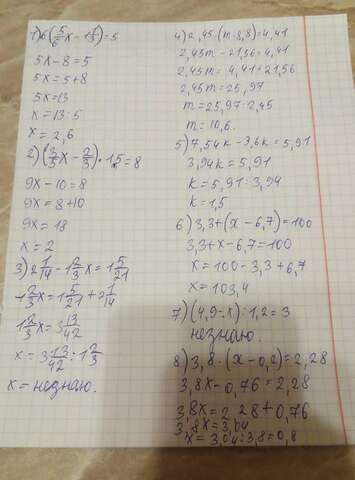 1) 6(5/6x - 1 1/3) = 5
5x - 8 = 5
5x = 5+8
5x = 13
x = 13:5
x = 2,6
2) (3/5x - 2/3) · 15 = 8
9x - 10 = 8
9x = 8+10
9x = 18
x = 2
3) 2 1/14 - 1 2/3 x = 1 5/21
1 2/3 x = 1 5/21 + 2 1/14
1 2/3 x = 3 13/42
x = 3 13/42 : 1 2/3
x = незнаю.
4) 2,45·(m-8,8) = 4,41
2,45m - 21,56 = 4,41
2,45m = 4,41+21,56
2,45m = 25,97
m = 25,97:2,45
m = 10,6.
5) 7,54k - 3,6k = 5,91
3,94k = 5,91
k = 5,91:3,94
k = 1,5
6) 3,3+(x-6,7) = 100
3,3+x-6,7 = 100
x = 100-3,3+6,7
x = 103,4
7) (4,9-x):1,2 = 3
незнаю.
8) 3,8·(x-0,2) = 2,28
3,8x - 0,76 = 2,28
3,8x = 2,28+0,76
3,8x = 3,04
x = 3,04:3,8 = 0,8